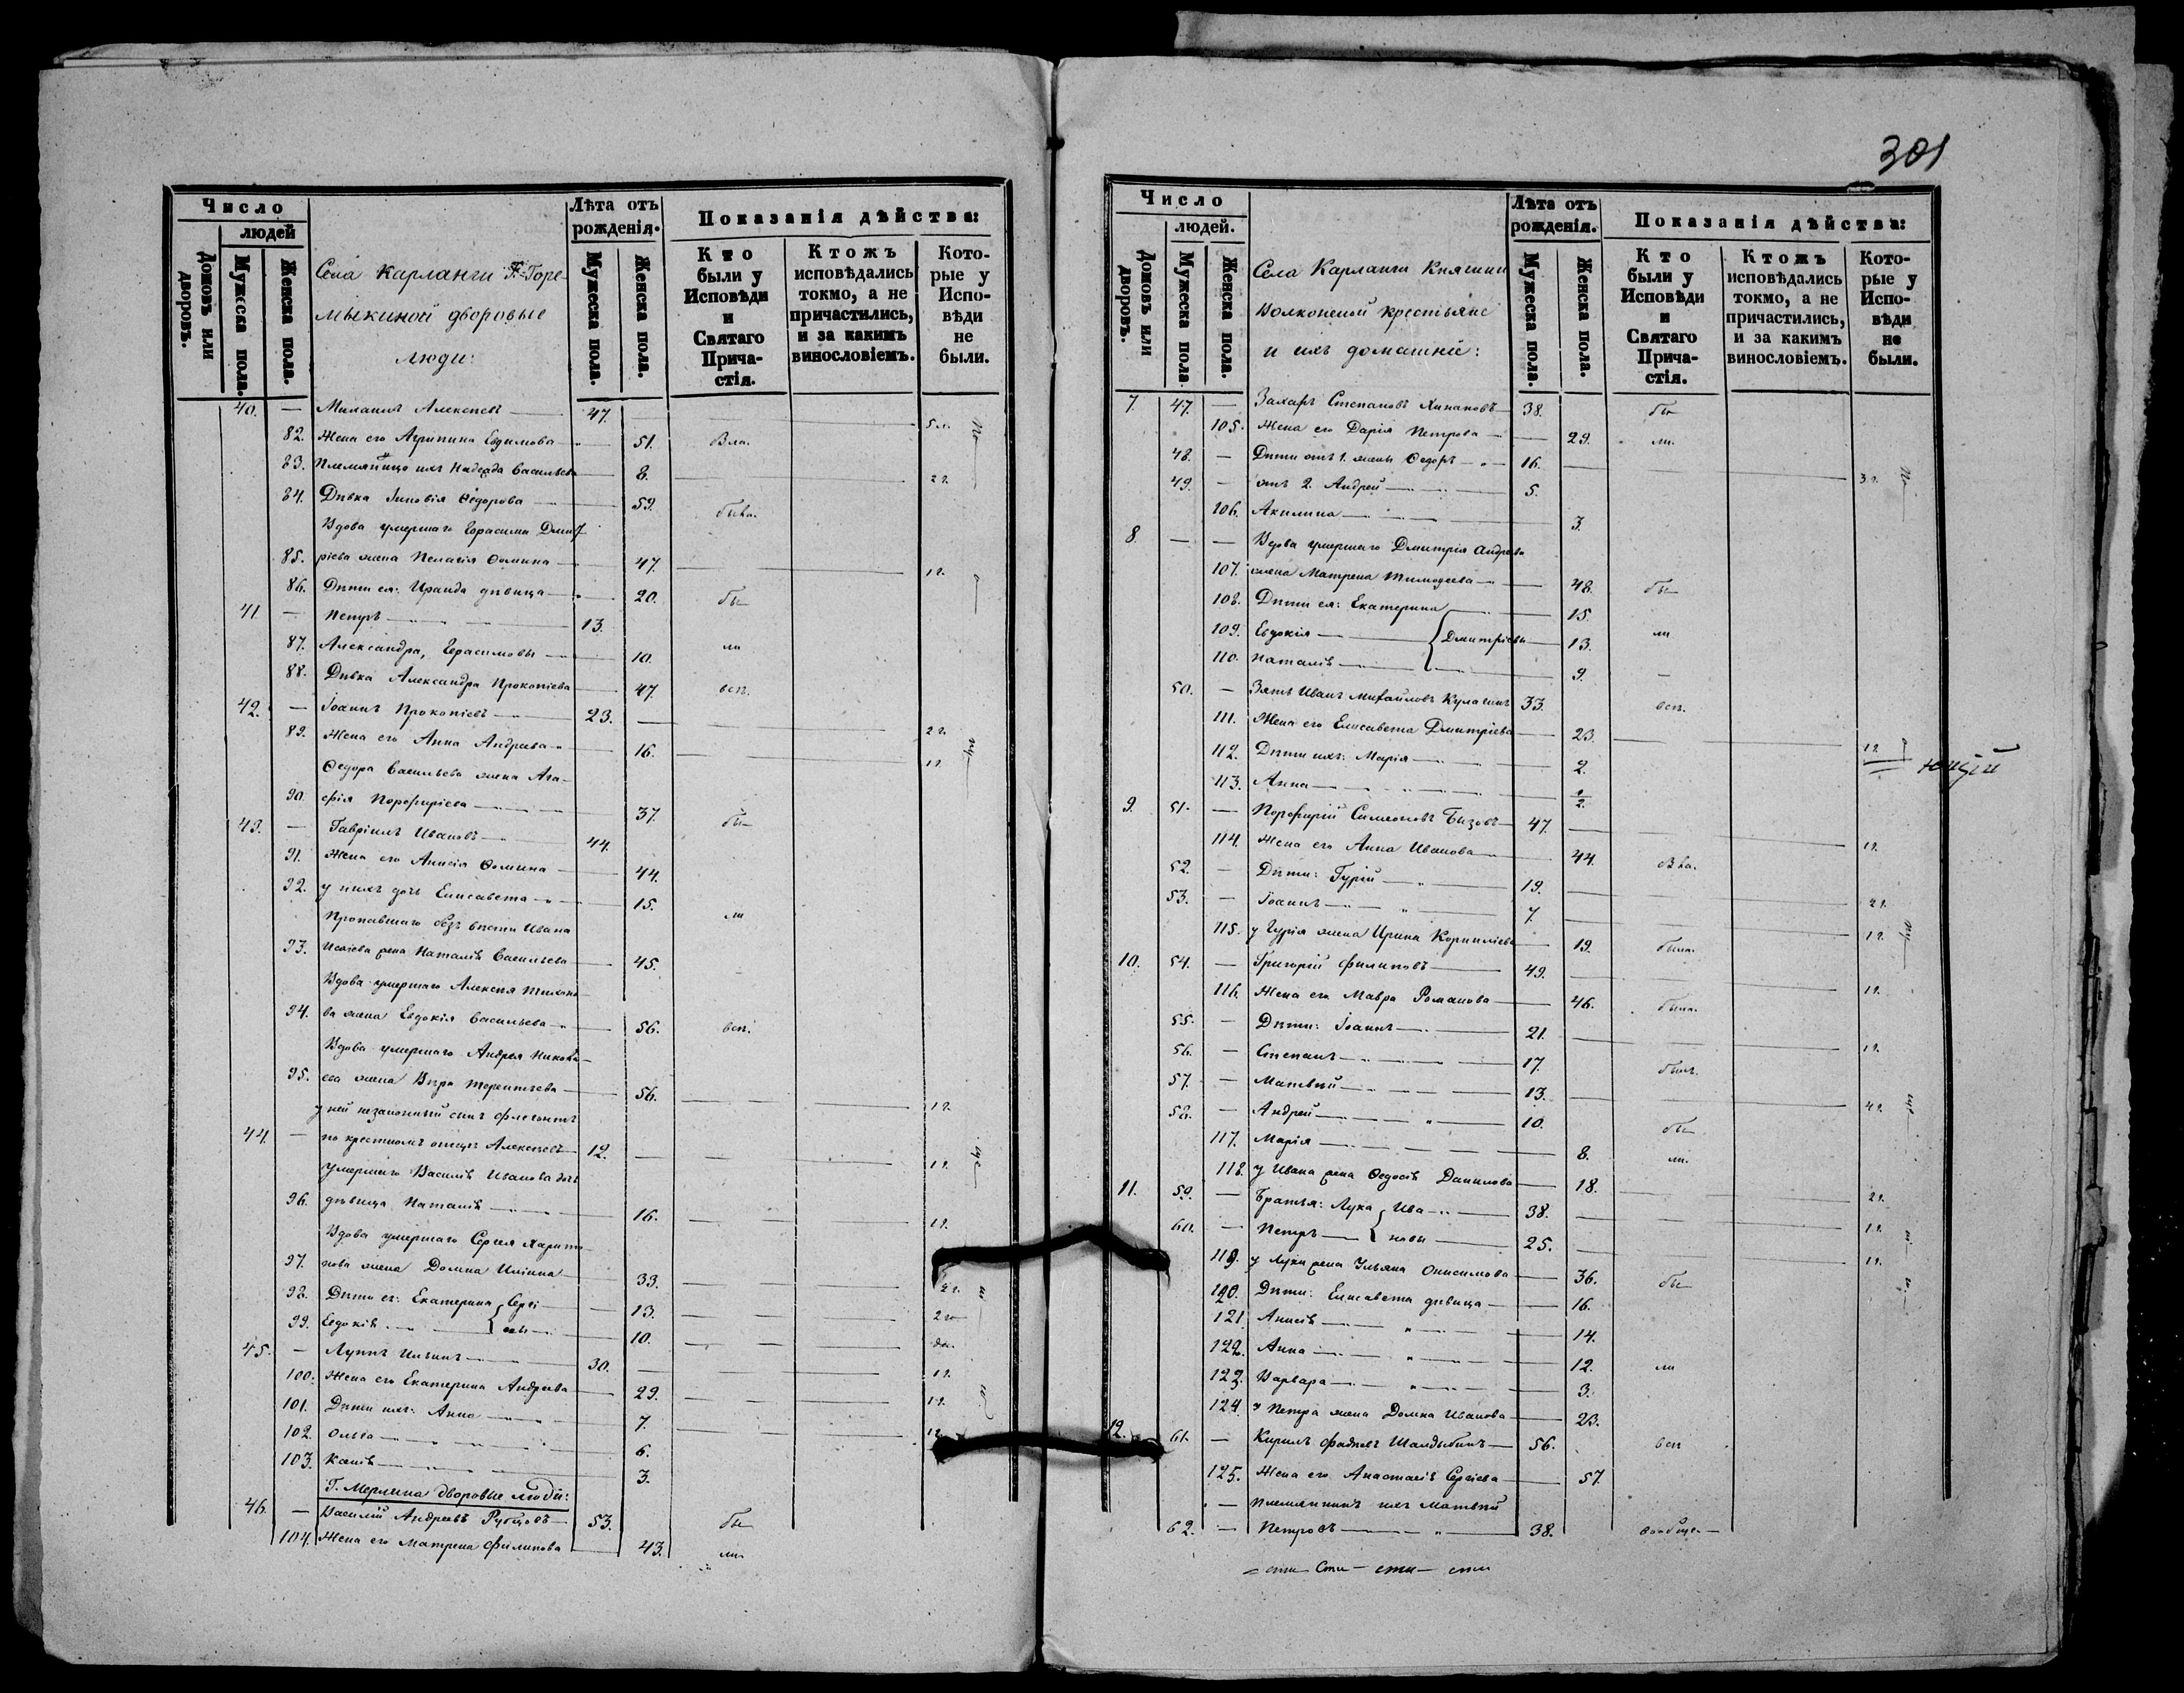 301
Число
людей
Домовъ или дворовъ.
Мужеска пола.
Женска пола.
Села Карланги Г. Горе-
мыкиной дворовые
люди:
Лѣта отъ рожденія.
Мужеска пола.
Женска пола.
Показанія дѣйства:
Кто были у Исповѣди и Святаго Прича-стія.
Ктожъ исповѣдались токмо, а не причастились, и за какимъ винословіемъ.
Кото-рые у Испо-вѣди не были.
40. — Михаилъ Алексѣевъ 47.
82. Жена его Агрипина Евдимова 51.
83. Племянница ихъ Надежда Васильева 8. 2 г.
84. Дѣвка Зиновія Ѳедорова 59. была.
Вдова умершаго Герасима Дмит
85. ріева жена Пелагія Ѳомина 47. 1 г.
86. Дѣти ея: Ираида дѣвица 20. бы
41 — Петръ 13.
87. Александра, Герасимовы 10. ли
88. Дѣвка Александра Прокопіева 47. всп.
42. — Іоаннъ Прокопіевъ 23. 2 г.
89. Жена его Анна Андреева 16. 1 г.
Ѳедора Васильева жена Ага-
90. фія Порофиріева 37. бы
43. — Гавріилъ Ивановъ 44.
91. Жена его Анисія Ѳомина 44.
92. у нихъ дочь Елисавета 15. ли
Пропавшаго безъ вѣсти Ивана
93. Исаіева жена Наталія Васильева 45.
Вдова умершаго Алексѣя Тихоно
94. ва жена Евдокія Васильева 56. всп.
Вдова умершаго Андрея Никола
95. ева жена Вѣра Терентьева 56. 1 г.
у ней незаконный сынъ Флегонтъ
44. — по крестномъ отцѣ Алексѣевъ 12. 1 г.
Умершаго Василія Иванова дочь
96. дѣвица Наталія 16. 1 г.
Вдова умершаго Сергея Харито
97. нова жена Домна Ильина 33. 2 г.
98. Дѣти ея: Екатерина Сергі 13. 2 г
99. Евдокія евы 10.
45. — Лупъ Ильинъ 30. 1 г.
100. Жена его Екатерина Андреева 29. 1 г.
101. Дѣти ихъ: Анна 7. 1 г.
102. Ольга 6.
103. Ксенія 3.
Г. Мерлина дворовые люди:
46. — Василій Андреевъ Рубцовъ 53. бы
104. Жена его Матрена Филипова 43. ли
Число
людей.
Домовъ или дворовъ.
Мужеска пола
Женска пола.
Села Карланги Княгини
Волконской крестьяне
и ихъ домашніе:
Лѣта отъ рожденія.
Мужеска пола.
Женска пола.
Показанія дѣйства:
Кто были у Исповѣди и Святаго Прича-стія.
Ктожъ исповѣдались токмо, а не причастились, и за какимъ винословіемъ.
Кото-рые у Испо-вѣди не были.
7. 47. — Захаръ Степановъ 38. бы
105. Жена его Дарія Петрова 29. ли.
48. — Дѣти отъ 1. жены Ѳедоръ 16. 3 г.
49. — отъ 2. Андрей 5.
106. Акилина 3.
8. — — Вдова умершаго Дмитрія Андреева
107. жена Матрена Тимоѳеева 48. бы
108. Дѣти ея: Екатерина 15.
109. Евдокія Дмитріевы 13. ли
110. Наталія 9.
50. — Зять Иванъ Михайловъ Кулагинъ 33. всп.
111. Жена его Елисавета Дмитріева 23. 1 г.
112. Дѣти ихъ: Марія 2.
113. Анна 1/2.
9. 51. — Порофирій Симеоновъ Бизовъ 47. 1 г.
114. Жена его Анна Иванова 44.
52. — Дѣти: Гурій 19. 2 г.
53. — Іоаннъ 7. 1 г.
115. у Гурія жена Ирина Корниліева 19. была.
10. 54. — Григорій Филиповъ 49. 1 г.
116. Жена его Мавра Романова 46. была.
55. — Дѣти: Іоаннъ 21. 1 г.
56. — Степанъ 17. былъ.
57. — Матвѣй 13.
58. — Андрей 10. бы
117. Марія 8. ли.
118. у Ивана жена Ѳедосія Данилова 18. 2 г.
11. 59. — Братья: Лука Ива 38. 1 г.
60. — Петръ новы 25. 1 г.
119. у Луки жена Ульяна Онисимова 36. бы
120. Дѣти: Елисавета дѣвица 16.
121. Анисія 14.
122. Анна 12. ли
123. Варвара 3.
124. у Петра жена Домна Иванова 23.
12. 61. — Кирилъ Фадѣевъ Шалдыбинъ 56. всп
125. Жена его Анастасія Сергіева 57.
— племянникъ ихъ Матвѣй
62. — Петровъ 38. вообще
сти сти сти сти